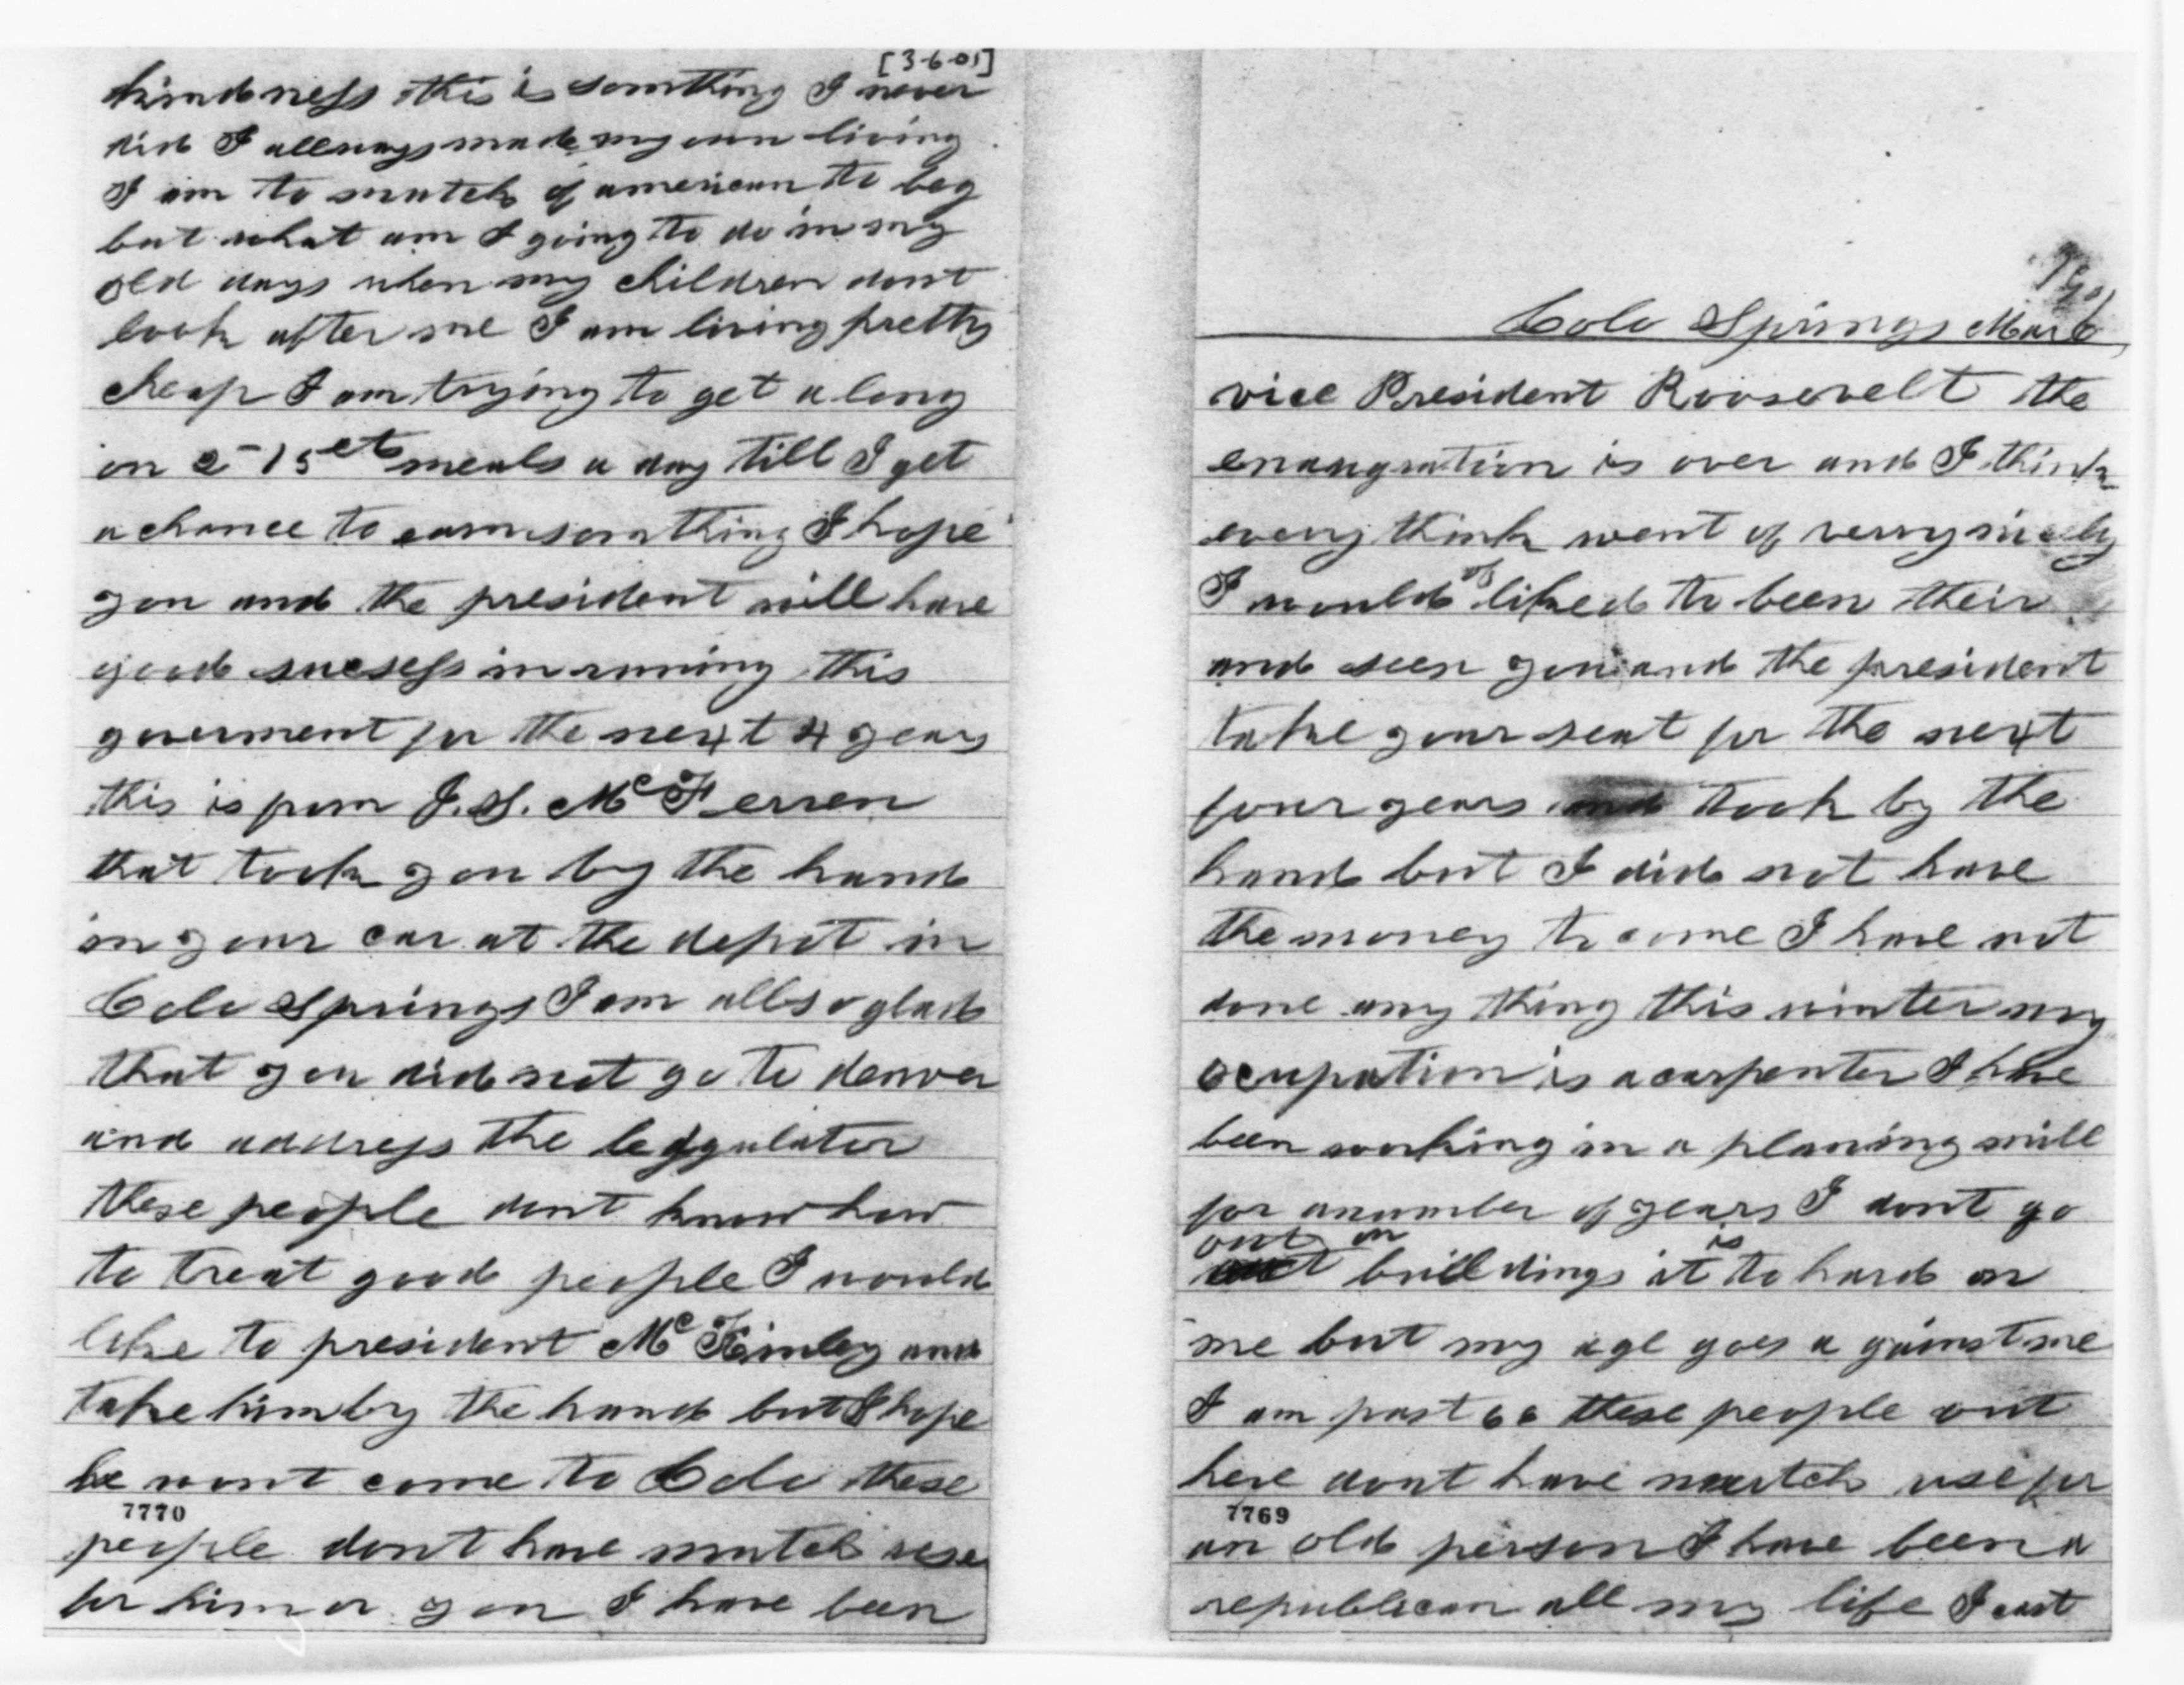 [3-6-01]
kindness this is somthing I never
did I allways made my own living
I am to mutch of american to beg
but what am I going to do in my
old days when my children dont
look after me I am living pretty
cheap I am trying to get a long
on 2 - 15 cts meals a day till I get
a chance to earn somthing I hope
you and the president will have
good sucsess in runing this
goverment for the next 4 years
this is from J. S. McFerren
that took you by the hand
in your car at the depot in
Colo Springs I am allso glad
that you did not go to denver
and address the legulator
these people dont know how
to treat good people I would
like to president McKinley and
take him by the hand but I hope
he wont come to Colo these
7770
people dont have mutch use
for him or you I have been
1901
Colo Springs Mar 6
vice President Roosevelt the
enaugration is over and I think
every think went of verry nicely
I would of liked to been their
and seen you and the president
take your seat for the next
four years and took by the
hand but I did not have
the money to come I have not
done any thing this winter my
ocupation is a carpenter I have
been working in a planing mill
for a number of years I dont go
out on
buildings it is to hard on
me but my age goes a gainst me
I am past 66 these people out
here dont have mutch use for
7769
an old person I have been a
republican all my life I cast